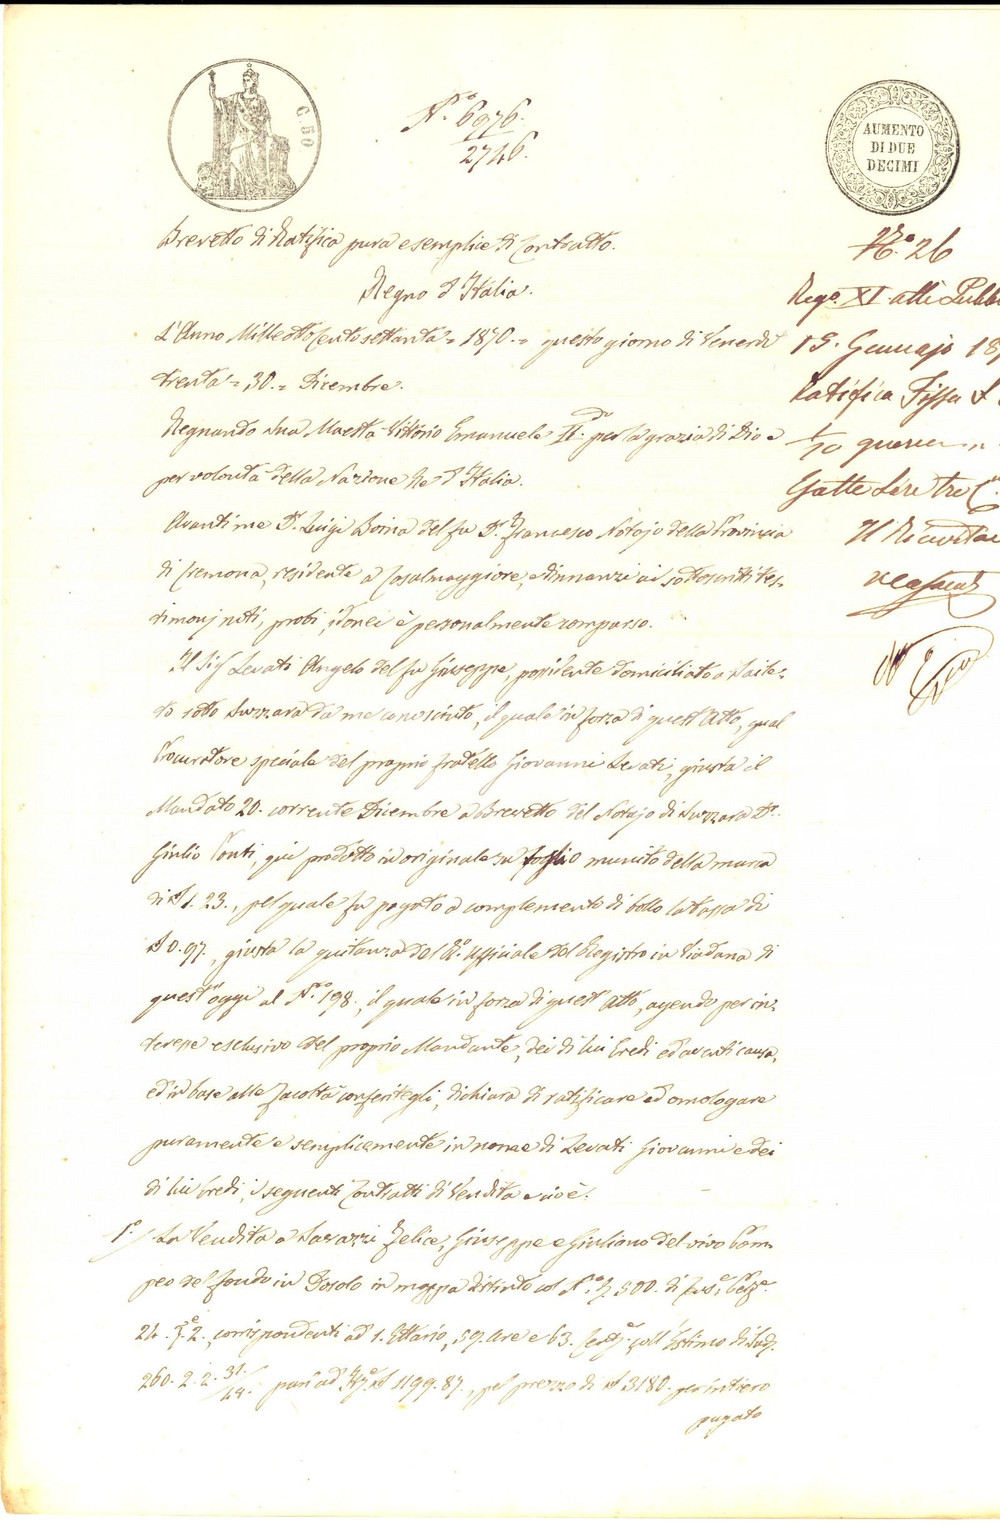 C. 50
N.° 6976.
2746.
AUMENTO
DI DUE
DECIMI
Brevetto di Ratifica pura e semplice di Contratto.
Regno d'Italia.
L'Anno Milleottocentosettanta = 1870. = questo giorno di Venerdì
trenta = 30. = Dicembre.
Regnando Sua Maestà Vittorio Emanuele II.do per la grazia di Dio e
per volontà della Nazione Re d'Italia.
Avanti me D.r Luigi Boina del fu D.r Francesco Notajo della Provincia
di Cremona, residente a Casalmaggiore, e dinnanzi ai sottoscritti tes-
timonj noti, probi, idonei è personalmente comparso.
Il Sig. Levati Angelo del fu Giuseppe, possidente domiciliato a
sotto Suzzara da me conosciuto, il quale in forza di quest'Atto, qual
Procuratore speciale del proprio fratello Giovanni Levati, giusta il
Mandato 20. corrente Dicembre a Brevetto del Notajo di Suzzara D.r
Giulio Conti, qui prodotto in originale su foglio munito della marca
di £ 1. 23., pel quale fu pagato a complemento di bollo la tassa di
£ 0. 97., giusta la quitanza del R.° Ufficiale del Registro in Viadana di
quest'oggi al N.° 198., il quale in forza di quest'Atto, agendo per in-
teresse esclusivo del proprio Mandante, dei di lui Eredi ed aventi causa,
ed in base alle facoltà conferitegli, dichiara di ratificare ed omologare
puramente e semplicemente in nome di Levati Giovanni e dei
di lui Eredi, i seguenti Contratti di Vendita e cioè.
1.° La Vendita a Sarazzi Felice, Giuseppe e Giuliano del vivo Pom-
peo del fondo in Dosolo in mappa distinto col N.° 500. di
24. 2., corrispondenti ad 1. Ettaro, 59. Are e 63. coll'Estimo di
260. 2. 2. 31./48. pari ad £ 1199. 87., pel prezzo di £ 3180. per intiero
pagato
N.° 26
Reg.° XI atti Pubb
15. Gennajo 18
Ratifica Fissa £
1/10 guerra
Il Ricevitore